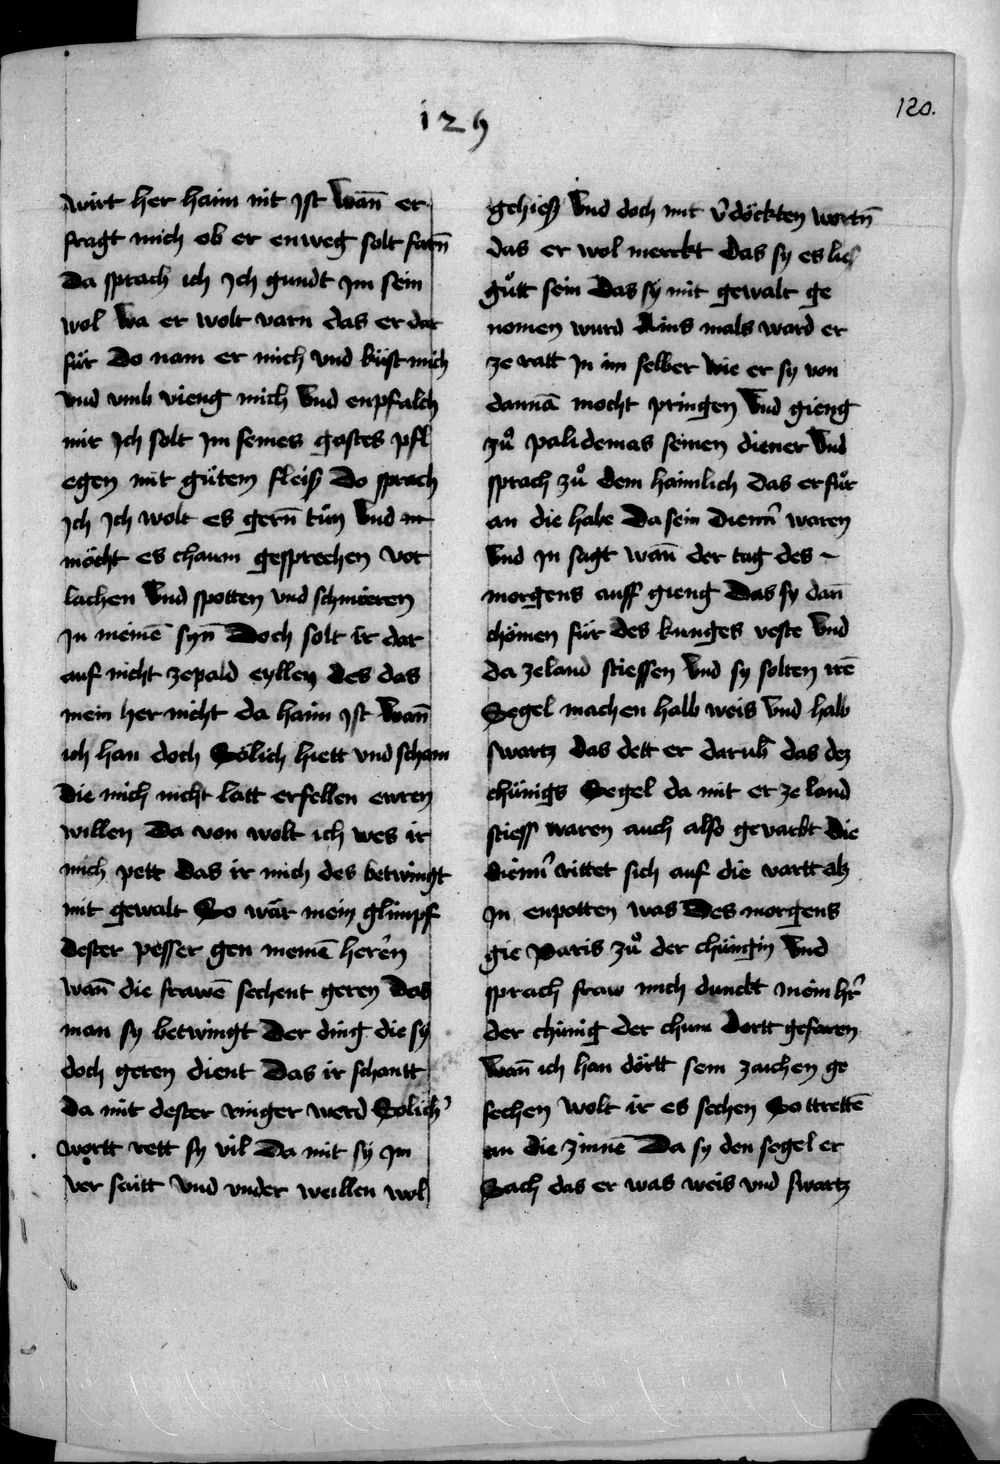 129
120.
wirt her haim nit ist wan̄ er
fragt mich ob er enweg solt farn̄
Da sprach ich Ich gundt Im sein
wol wa er wolt varn das er dar
für Do nam er mich vnd küst mich
vnd vmb vieng mich Vnd enpfalch
mir Ich solt Im seines gastes pfl
egen mit gůtem fleiß Do sprach
Ich Ich wolt es gern̄ tůn Vnd
möcht es chaum gesprechen vor
lachen Vnd spotten vnd schmieren
In meinē syn̄ Doch solt ir dar
auf nicht zepald eyllen des das
mein her nicht da haim ist wan̄
ich han doch Sölich hiett vnd scham
Die mich nicht latt erfellen ewren
willen Da von wolt ich wes ir
mich pett das ir mich des betwingt
mit gewalt So wär mein glimpf
dester pesser gen meinē herrn
wan̄ die frawē sechent geren Das
man sy betwingt Der ding die sy
doch geren dient Das ir schantt
da mit dester ringer werd Solich
wortt rett sy vil Da mit sy Im
ver saitt vnd vnder weillen wol
gehieß Vnd doch mit v̓döckten wortn̄
das er wol merckt das sy es ließ
gůtt sein Das sy mit gewalt ge
nomen wurd Ains mals ward er
ze ratt In im selber wie er sy von
dannā mocht pringen Vnd gieng
zů palidemas seinen diener Vnd
sprach zů dem haimlich das er fůr
an die habe Da sein dienn̓ waren
Vnd In sagt wan̄ der tag des
morgens auff gieng Das sy dan̄
chömen für des kunges veste Vnd
da zeland stiessen Vnd sy solten irē
Segel machen halb weis Vnd halb
swartz das dett er darub̄ das dez
chünigs Segel da mit er ze land
stiess waren auch also gevarbt Die
dienn̓ rittet sich auf die vartt als
In enpotten was Des morgens
gie Paris zů der chüngin Vnd
sprach fraw mich dunckt mein hr̓
der chünig der chum dortt gefaren
wan̄ ich han dörtt sein zaichen ge
sechen wolt ir es sechen So trettē
an die zinnē Da sy den segel er
Sach das er was weis vnd swartz